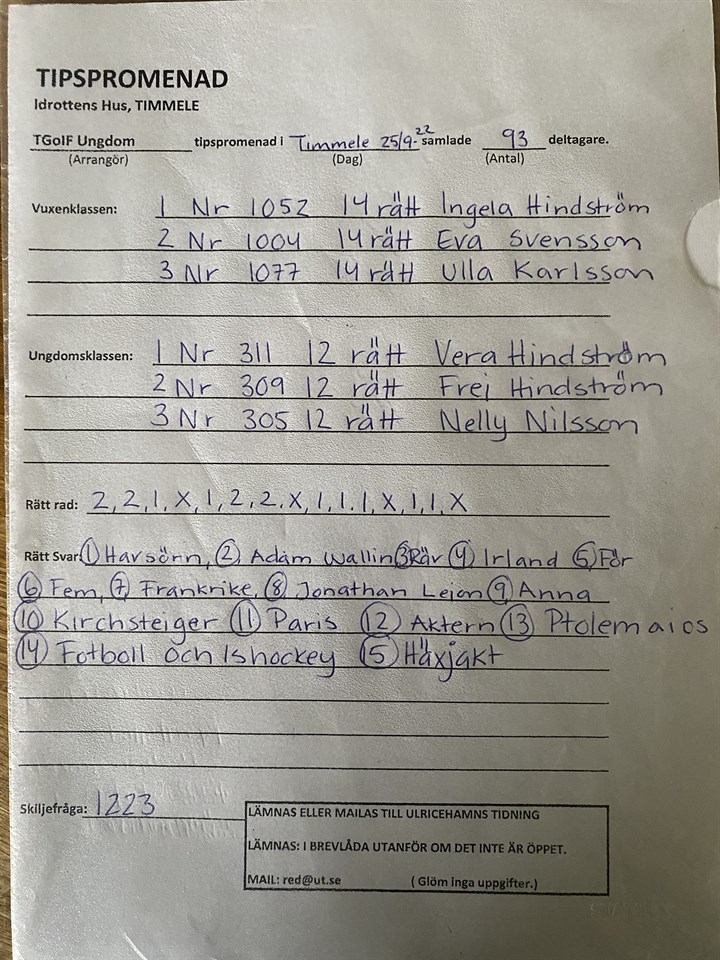 TIPSPROMENAD
Idrottens Hus, TIMMELE
TGoIF Ungdom tipspromenad i Timmele 25/9-22 samlade 93 deltagare.
(Arrangör) (Dag) (Antal)
Vuxenklassen: 1 Nr 1052 14 rätt Ingela Hindström
2 Nr 1004 14 rätt Eva Svensson
3 Nr 1077 14 rätt Ulla Karlsson
Ungdomsklassen: 1 Nr 311 12 rätt Vera Hindström
2 Nr 309 12 rätt Frej Hindström
3 Nr 305 12 rätt Nelly Nilsson
Rätt rad: 2, 2, 1, X, 1, 2, 2, X, 1, 1, 1, X, 1, 1, X
Rätt Svar: 1 Havsörn, 2 Adam Wallin 3 Räv 4 Irland 5 För
6 Fem, 7 Frankrike, 8 Jonathan Leion 9 Anna
10 Kirchsteiger 11 Paris 12 Aktern 13 Ptolemaios
14 Fotboll och Ishockey 15 Häxjakt
Skiljefråga: 1223
LÄMNAS ELLER MAILAS TILL ULRICEHAMNS TIDNING
LÄMNAS: I BREVLÅDA UTANFÖR OM DET INTE ÄR ÖPPET.
MAIL: red@ut.se ( Glöm inga uppgifter.)